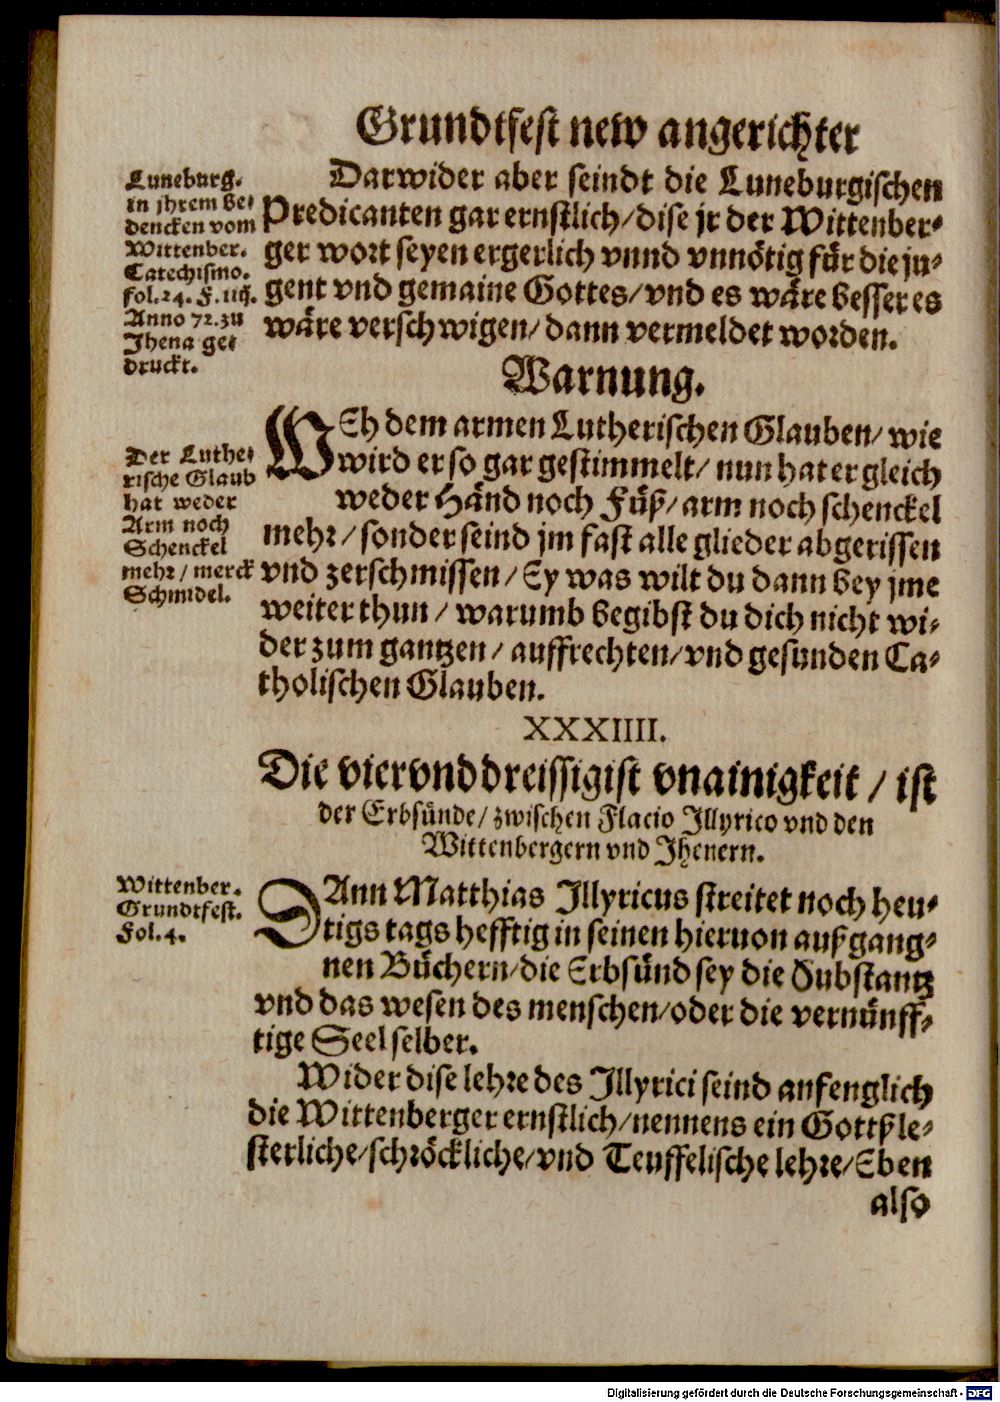 Grundtfest new angerichter
Luneburg.
in jhrem be⸗
dencken vom
Wittenber.
Catechismo.
fol. 24. F. iiij.
Anno 72. zu
Jhena ge⸗
druckt.
Darwider aber seindt die Luneburgischen
Predicanten gar ernstlich/ dise jr der Wittenber⸗
ger wort seyen ergerlich vnnd vnnötig für die ju⸗
gent vnd gemaine Gottes/ vnd es wäre besser es
wäre verschwigen/ dann vermeldet worden.
Warnung.
Der Luthe⸗
rische Glaub
hat weder
Arm noch
Schenckel
mehr/ merck
Schmidel.
WEh dem armen Lutherischen Glauben/ wie
wird er so gar gestimmelt/ nun hat er gleich
weder Händ noch Füß/ arm noch schenckel
mehr/ sonder seind jm fast alle glieder abgerissen
vnd zerschmissen/ Ey was wilt du dann bey jme
weiter thun/ warumb begibst du dich nicht wi⸗
der zum gantzen/ auffrechten/ vnd gesunden Ca⸗
tholischen Glauben.
XXXIIII.
Die viervnddreissigist vnainigkeit/ ist
der Erbsünde/ zwischen Flacio Jllyrico vnd den
Wittenbergern vnd Jhenern.
Wittenber.
Grundtfest.
Fol. 4.
DAnn Matthias Jllyricus streitet noch heu⸗
tigs tags hefftig in seinen hieruon außgang⸗
nen Büchern/ die Erbsünd sey die Substantz
vnd das wesen des menschen/ oder die vernünff⸗
tige Seel selber.
Wider dise lehre des Jllyrici seind anfenglich
die Wittenberger ernstlich/ nennens ein Gottßle⸗
sterliche/ schröckliche/ vnd Teuffelische lehre/ Eben
also
Digitalisierung gefördert durch die Deutsche Forschungsgemeinschaft - DFG